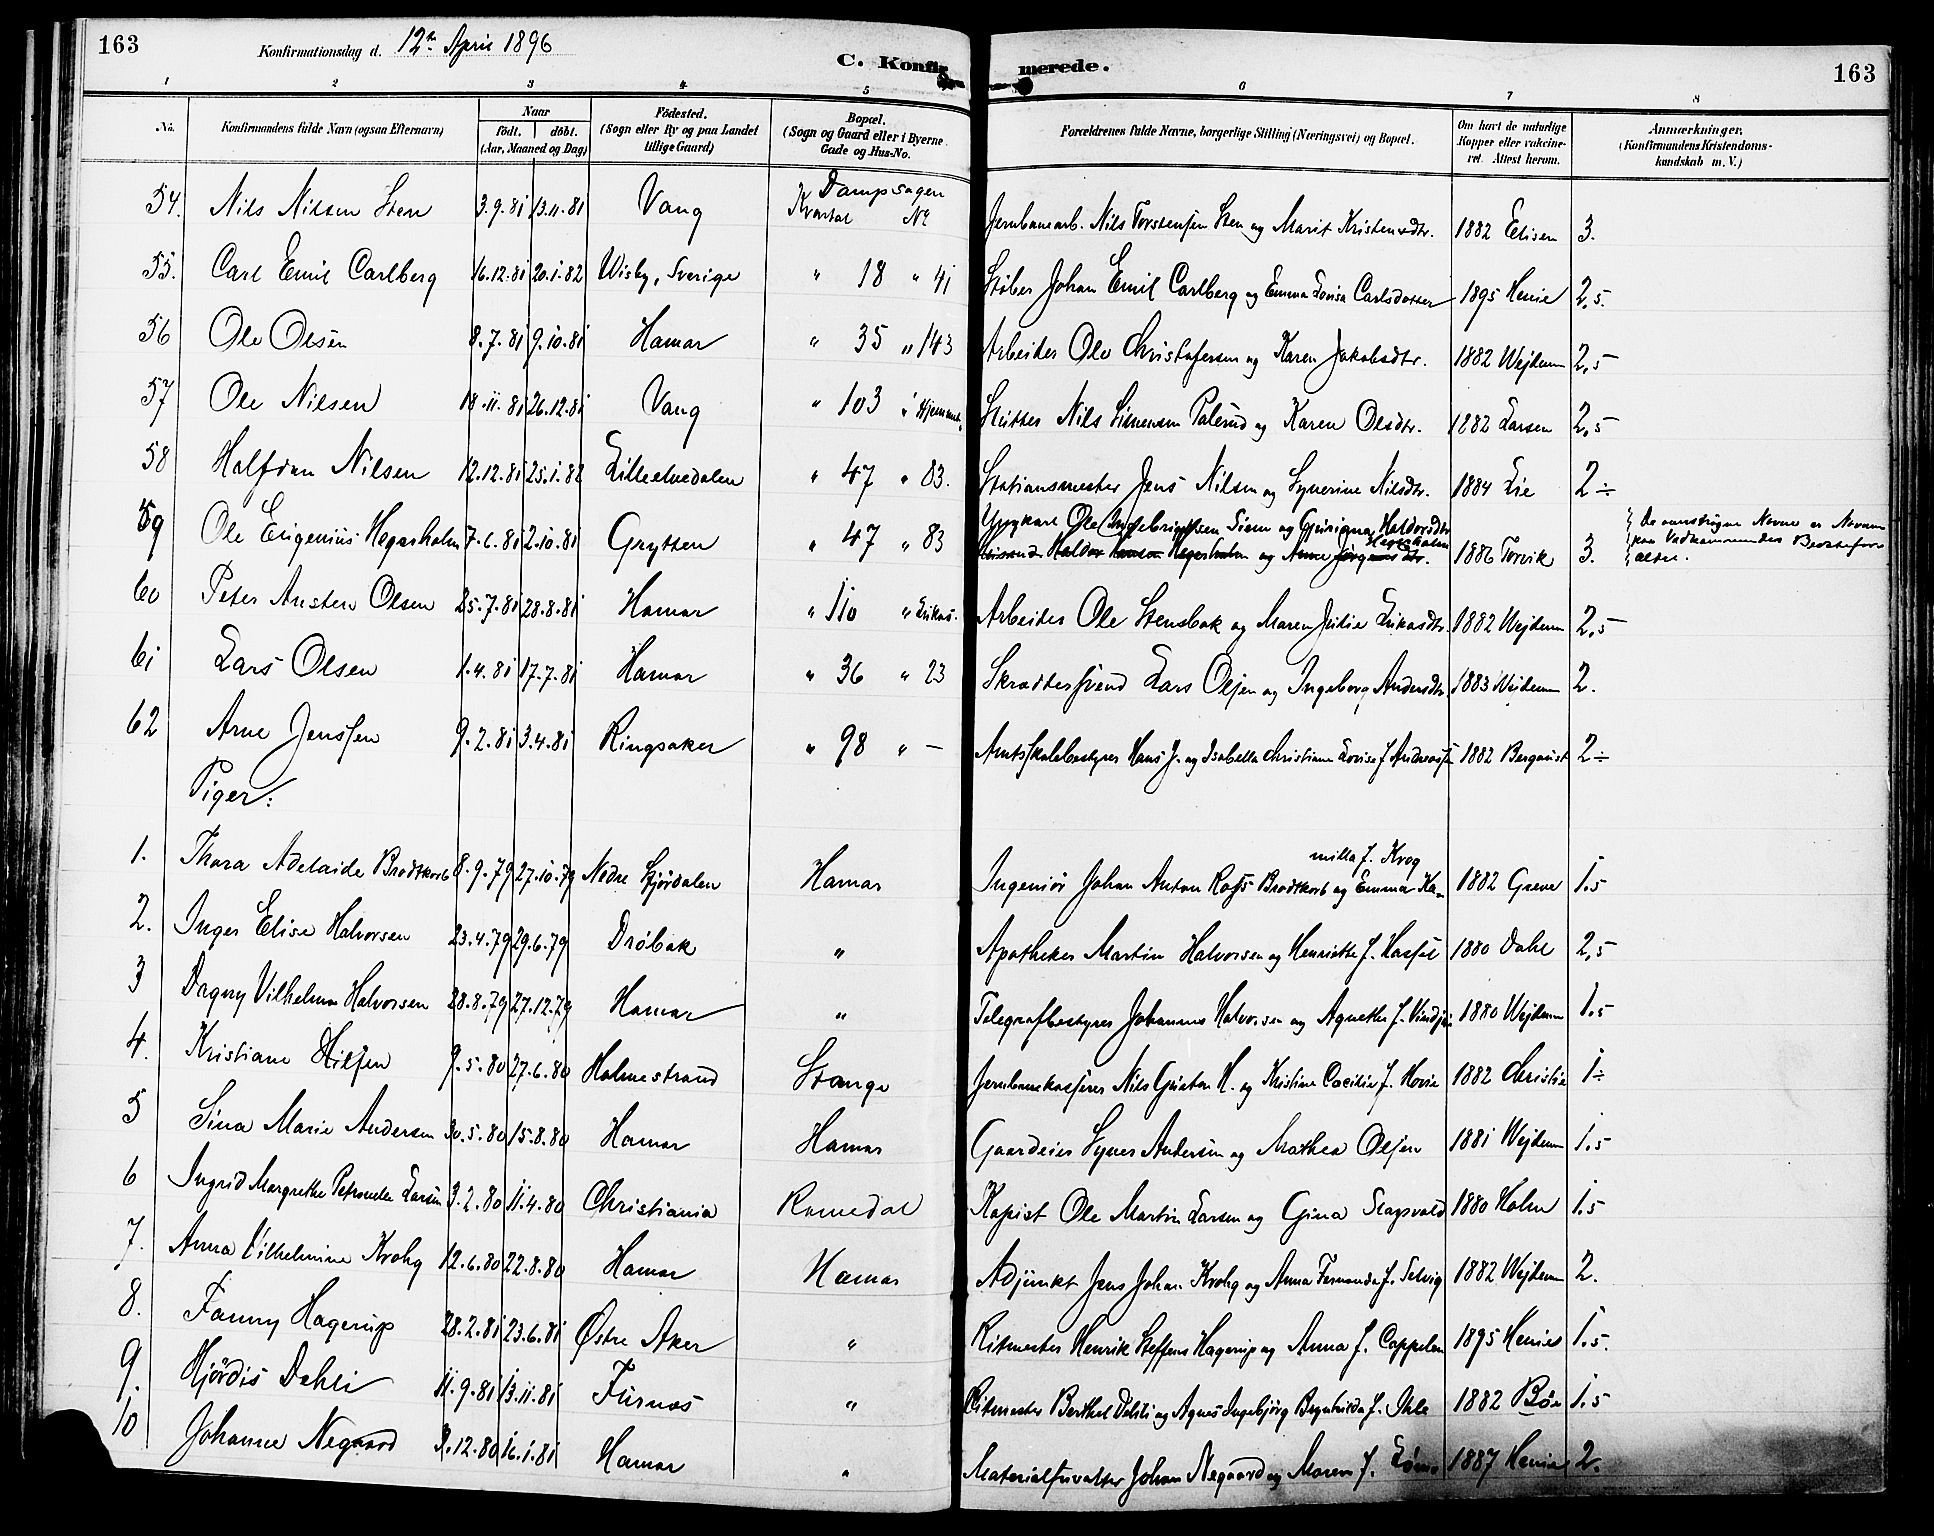 163
Konfirmationsdag d. 12te April 1896
C. Konfirmerede.
163
1 2 3 4 5 6 7 8
No. Konfirmandens fulde Navn (ogsaa Efternavn) Naar født. døbt. (Aar, Maaned og Dag) Fødested. (Sogn eller By og paa Landet tillige Gaard) Bopæl. (Sogn og Gaard eller i Byerne Gade og Hus-No. Forældrenes fulde Navne, borgerlige Stilling (Næringsvei) og Bopæl. Om havt de naturlige Kopper eller vaccineret. Attest herom. Anmærkninger, (Konfirmandens Kristendomskundskab m. V.)
54. Nils Nilsen Sten 3.9.81 13.11.81 Vang Dampsagen Kvartal No Jernbanearb. Nils Torstensen Sten og Marit Kristensdtr. 1882 Ellsen 3.
55. Carl Emil Carlberg 16.12.81 20.1.82 Wisby, Sverige " 18 " 41 Støber Johan Emil Carlberg og Emma Lovisa Carlsdotter 1895 Henie 2,5.
56 Ole Olsen 8.7.81 9.10.81 Hamar " 35 " 143 Arbeider Ole Christofersen og Karen Jakobsdtr. 1882 Wejdem 2,5
57 Ole Nilsen 18.11.81 26.12.81 Vang " 103 " Hjemmet. Nils Simensen Palerud og Karen Olsdtr. 1882 Larsen 2,5
58 Halfdan Nilsen 12.12.81 25.1.82 Lilleelvedalen " 47 " 83. Stationsmester Jens Nilsen og Synerine Nilsdtr. 1884 Lie 2÷
59 Ole Eugenius Hegerholm 7.6.81 2.10.81 Grytten " 47 " 83 Ole Ingebrigtsen Siem og Haldorsdtr Hegerholm 1886 Torvik 3. De overstrøgne Navne er Navnene paa Vedkommendes Bedsteforældre.
60 Peter Austen Olsen 25.7.81 28.8.81 Hamar " 110 " Arbeider Ole Stensbak og Maren Julie 1882 Wejdem 2,5
61 Lars Olsen 1.4.81 17.7.81 Hamar " 36 " 23 Skrædersvend Lars Olsen og Ingeborg Andersdtr 1883 Wejdem 2.
62 Arne Jenssen 9.2.81 3.4.81 Ringsaker " 98 " – Amtsskolebestyrer Hans J. og Isabella Christiane Lovise f. Andreassen 1882 Berquist 2÷
Piger:
1. Thora Adelaide Brodtkorb 8.9.79 27.10.79 Nedre Stjørdalen Hamar Ingeniør Johan Anton Ross Brodtkorb og Emma Ka- milla f. Krog 1882 Greve 1.5
2. Inger Elise Halvorsen 23.4.79 29.6.79 Drøbak " Apotheker Martin Halvorsen og Henriette f. Hassel 1880 Dahl 2,5
3 Dagny Vilhelmine Halvorsen 28.8.79 27.12.79 Hamar " Telegrafbestyrer Johannes Halvorsen og Agnethe f. 1880 Wejdem 1.5
4. Kristiane Hilsen 9.5.80 27.6.80 Holmestrand Stange Jernbanekasserer Nils Gustav H. og Kristine Cecilie f. Hovie 1882 Christie 1÷
5 Sina Marie Andersen 30.5.80 15.8.80 Hamar Hamar Gaardeier Syver Andersen og Mathea Olsen 1881 Wejdem 1.5
6 Ingrid Margrethe Petronelle Larsen 3.2.80 11.4.80 Christiania Romedal Kopist Ole Martin Larsen og Gina Slagsvold 1880 Holm 1.5
7. Anna Vilhelmine Krohg 12.6.80 22.8.80 Hamar Hamar Adjunkt Jens Johan Krohg og Anna Fernanda f. Selvig 1882 Wejdem 2.
8. Fanny Hagerup 28.2.81 23.6.81 Østre Aker " Ritmester Henrik Steffens Hagerup og Anna f. Cappelen 1895 Henie 1.5.
9. Hjørdis Dehli 11.9.81 13.11.81 Furnes " Ritmester Berthel Dehli og Agnes Ingebjørg Brynhilda f. Ihle 1882 Bøe 1.5
10 Johanne Negaard 3.12.80 16.1.81 Hamar " Materialforvalter Johan Negaard og Maren f. 1887 Henie 2.